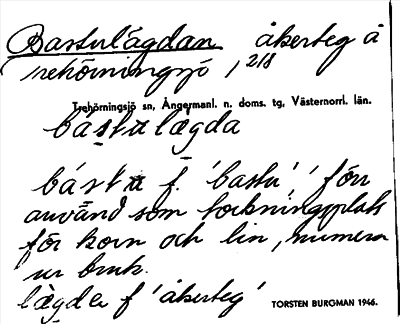 Bastulägdan åkerteg å
Trehörningsjö, 2/8
Trehörningsjö sn, Ångermanl. n. doms. tg, Västernorrl. län.
bástulægda
básta f. 'bastu', förr
använd som torkningsplats
för korn och lin, numera
ur bruk.
lægder f 'åkerteg'
TORSTEN BURGMAN 1946.